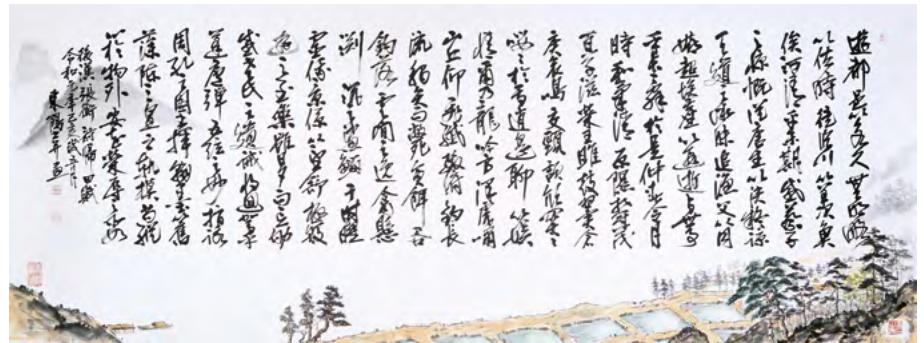 遊都邑以永久無明略
以佐時徒臨川以羨魚
俟河清乎未期感蔡子
之慷慨從唐生以決疑諒
天道之微昧追漁父以同
嬉超埃塵以遐逝與世事
乎長辭於是仲春令月
時和氣清原隰鬱茂
百草滋榮王雎鼓翼倉
庚哀鳴交頸頡頏關關
嚶嚶於焉逍遙聊以娛
情爾乃龍吟方澤虎嘯
山丘仰飛纖繳俯釣長
流觸矢而斃貪餌吞
鉤落雲間之逸禽懸
淵沉之魦鰡于時曜
靈俄景係以望舒極般
遊之至樂雖日夕而忘劬
感老氏之遺誡將迴駕乎
蓬廬彈五絃之妙指詠
周孔之圖書揮翰墨以奮
藻陳三皇之軌模苟縱心
於物外安知榮辱之所如
後漢張衡詩歸田賦
令和元年己亥歲五月
東陽